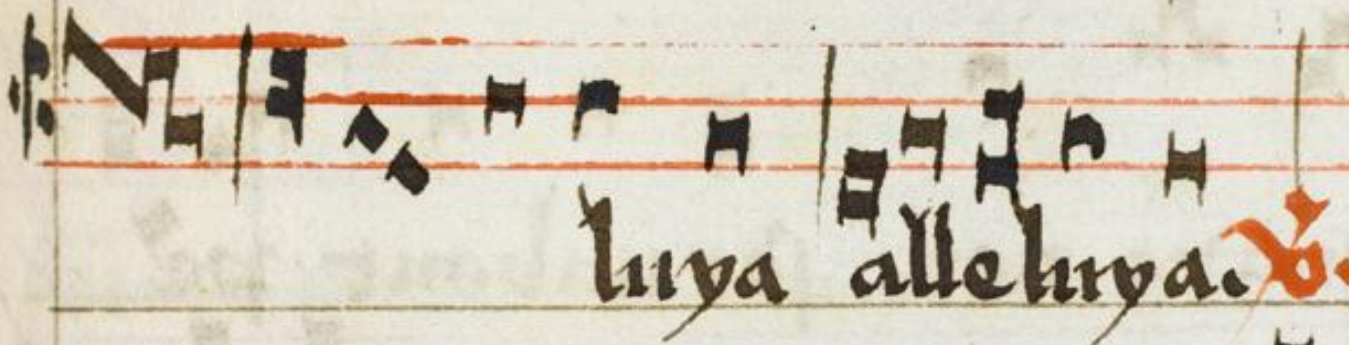 luya alleluya. ℣.